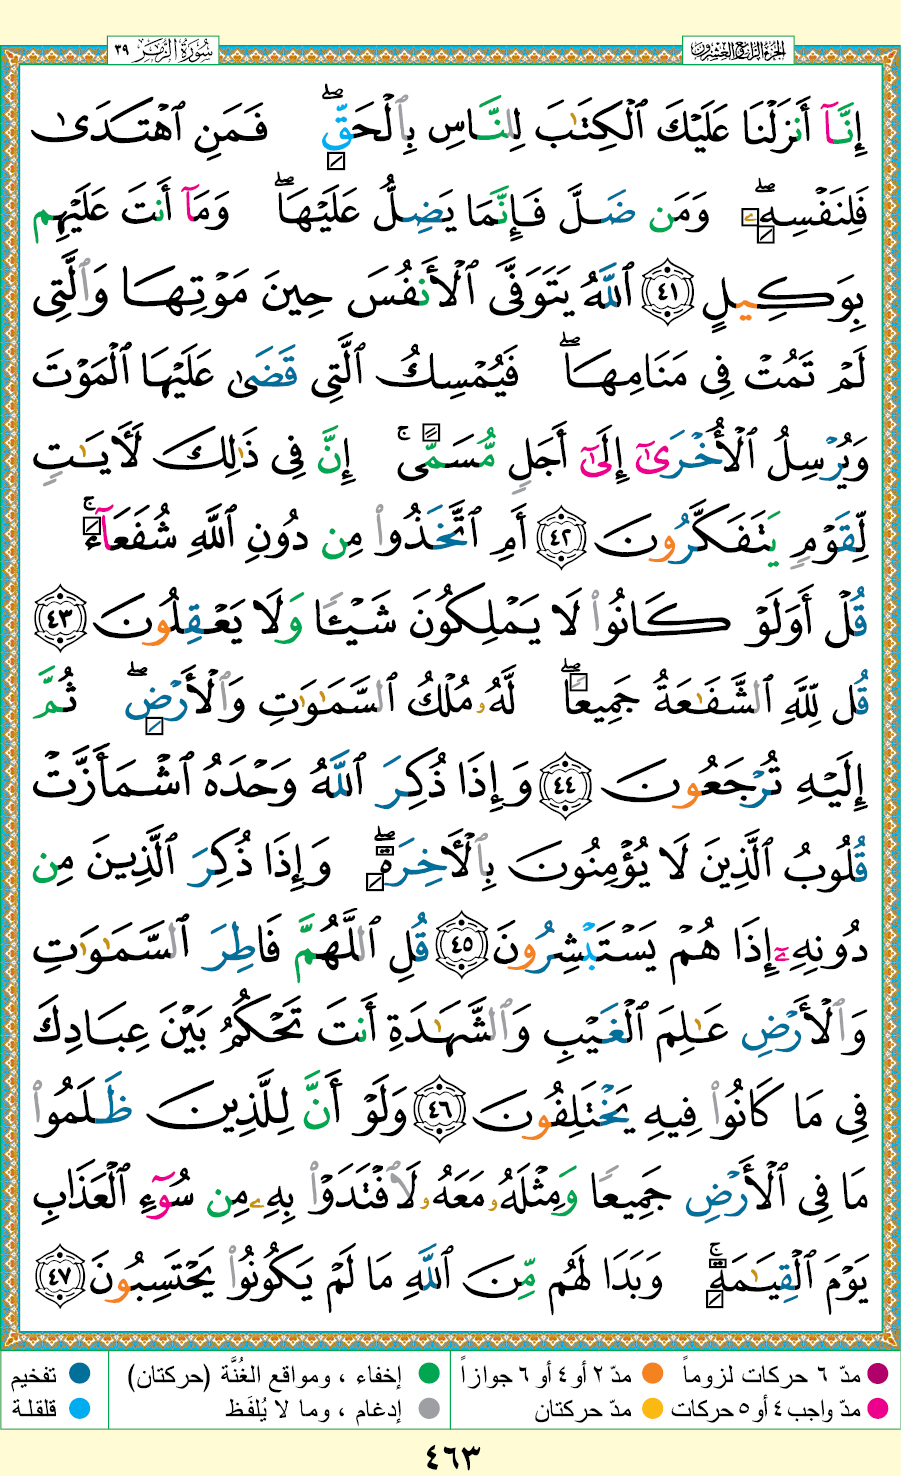 سُورَةُ الزُّمَر ٣٩
الجزء الرابع والعشرون
إِنَّآ أَنزَلْنَا عَلَيْكَ ٱلْكِتَٰبَ لِلنَّاسِ بِٱلْحَقِّ ۖ فَمَنِ ٱهْتَدَىٰ
فَلِنَفْسِهِۦ ۖ وَمَن ضَلَّ فَإِنَّمَا يَضِلُّ عَلَيْهَا ۖ وَمَآ أَنتَ عَلَيْهِم
بِوَكِيلٍ ٤١ ٱللَّهُ يَتَوَفَّى ٱلْأَنفُسَ حِينَ مَوْتِهَا وَٱلَّتِى
لَمْ تَمُتْ فِى مَنَامِهَا ۖ فَيُمْسِكُ ٱلَّتِى قَضَىٰ عَلَيْهَا ٱلْمَوْتَ
وَيُرْسِلُ ٱلْأُخْرَىٰٓ إِلَىٰٓ أَجَلٍ مُّسَمًّى ۚ إِنَّ فِى ذَٰلِكَ لَأٓيَٰتٍ
لِّقَوْمٍ يَتَفَكَّرُونَ ٤٢ أَمِ ٱتَّخَذُوا۟ مِن دُونِ ٱللَّهِ شُفَعَآءَ ۚ
قُلْ أَوَلَوْ كَانُوا۟ لَا يَمْلِكُونَ شَيْـًٔا وَلَا يَعْقِلُونَ ٤٣
قُل لِّلَّهِ ٱلشَّفَٰعَةُ جَمِيعًا ۖ لَّهُۥ مُلْكُ ٱلسَّمَٰوَٰتِ وَٱلْأَرْضِ ۖ ثُمَّ
إِلَيْهِ تُرْجَعُونَ ٤٤ وَإِذَا ذُكِرَ ٱللَّهُ وَحْدَهُ ٱشْمَأَزَّتْ
قُلُوبُ ٱلَّذِينَ لَا يُؤْمِنُونَ بِٱلْأَخِرَةِ ۖ وَإِذَا ذُكِرَ ٱلَّذِينَ مِن
دُونِهِۦٓ إِذَا هُمْ يَسْتَبْشِرُونَ ٤٥ قُلِ ٱللَّهُمَّ فَاطِرَ ٱلسَّمَٰوَٰتِ
وَٱلْأَرْضِ عَٰلِمَ ٱلْغَيْبِ وَٱلشَّهَٰدَةِ أَنتَ تَحْكُمُ بَيْنَ عِبَادِكَ
فِى مَا كَانُوا۟ فِيهِ يَخْتَلِفُونَ ٤٦ وَلَوْ أَنَّ لِلَّذِينَ ظَلَمُوا۟
مَا فِى ٱلْأَرْضِ جَمِيعًا وَمِثْلَهُۥ مَعَهُۥ لَٱفْتَدَوْا۟ بِهِۦ مِن سُوٓءِ ٱلْعَذَابِ
يَوْمَ ٱلْقِيَٰمَةِ ۚ وَبَدَا لَهُم مِّنَ ٱللَّهِ مَا لَمْ يَكُونُوا۟ يَحْتَسِبُونَ ٤٧
مدّ ٦ حركات لزوماً مدّ ٢ أو ٤ أو ٦ جوازاً إخفاء ، ومواقع الغُنَّة (حركتان) تفخيم
مدّ واجب ٤ أو ٥ حركات مدّ حركتان إدغام ، وما لا يُلفَظ قلقلة
٤٦٣